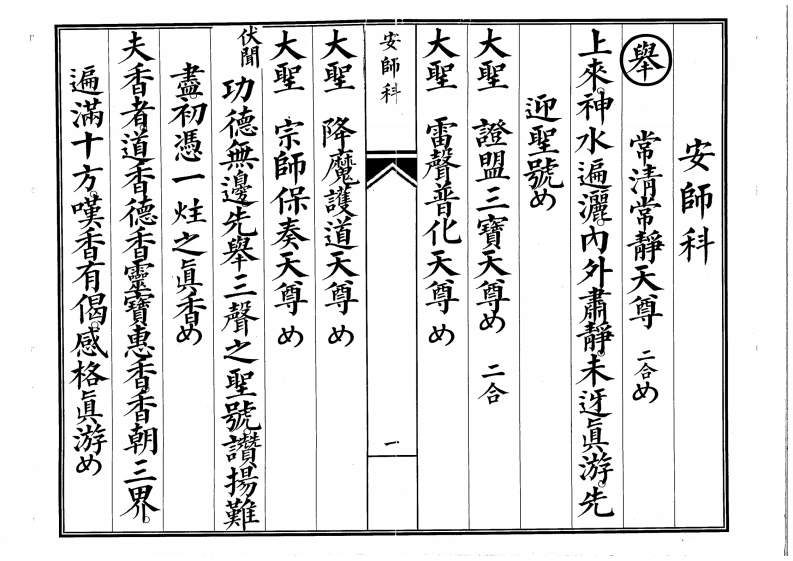 安師科
舉
常清常靜天尊 二合め
上來神水遍灑。內外肅靜。未迓眞游。先
迎聖號め
大聖 證盟三寶天尊め 二合
大聖 雷聲普化天尊め
安師科
一
大聖 降魔護道天尊め
大聖 宗師保奏天尊め
伏聞
功德無邊先舉三聲之聖號。讚揚難
盡。初憑一炷之眞香め
夫香者道香德香靈寶惠香香朝三界。
遍滿十方。嘆香有偈。感格眞游め